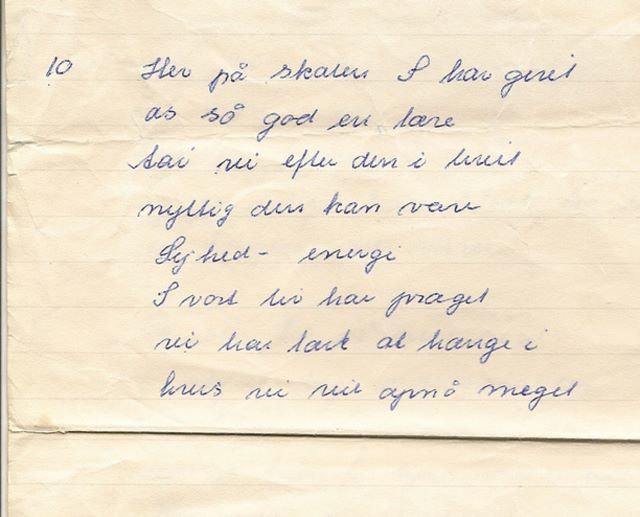 10 Her på skolen I har givet
os så god en lære
tar vi efter den i livet
nyttig den kan være
Sejhed - energi
I vort liv har præget
vi har lært at hænge i
hvis vi vil opnå meget